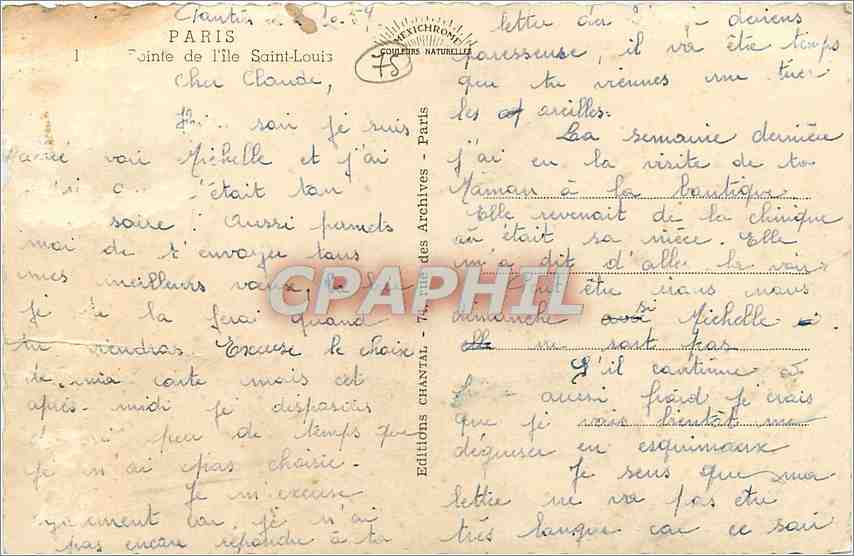 PARIS
1 Pointe de l'île Saint-Louis
MEXICHROME
COULEURS NATURELLES
75
Cher Claude,
soir je suis
voir Michelle et j'ai
c'était ton
soire! Aussi permets
moi de t'envoyer tous
mes meilleurs voeux, la
je te la ferai quand
tu viendras. Excuse le choix
de ma carte mais cet
après-midi je disposais
peu de temps que
je n'ai pas choisie.
Je m'excuse
également car je n'ai
pas encore répondre à ta
Editions CHANTAL - 74, rue des Archives - Paris
lettre deviens
paresseuse, il va être temps
que tu viennes me tirer
les oreilles.
La semaine dernière
j'ai eu la visite de ta
Maman à la boutique
Elle revenait de la clinique
où était sa nièce. Elle
m'a dit d'aller la voir
Peut être irons nous
dimanche si Michelle
elle ne sort pas
S'il continue à
aussi froid je crois
que je vais bientôt me
déguiser en esquimaux
Je sens que ma
lettre ne va pas être
très longue car ce soir
CPAPHIL